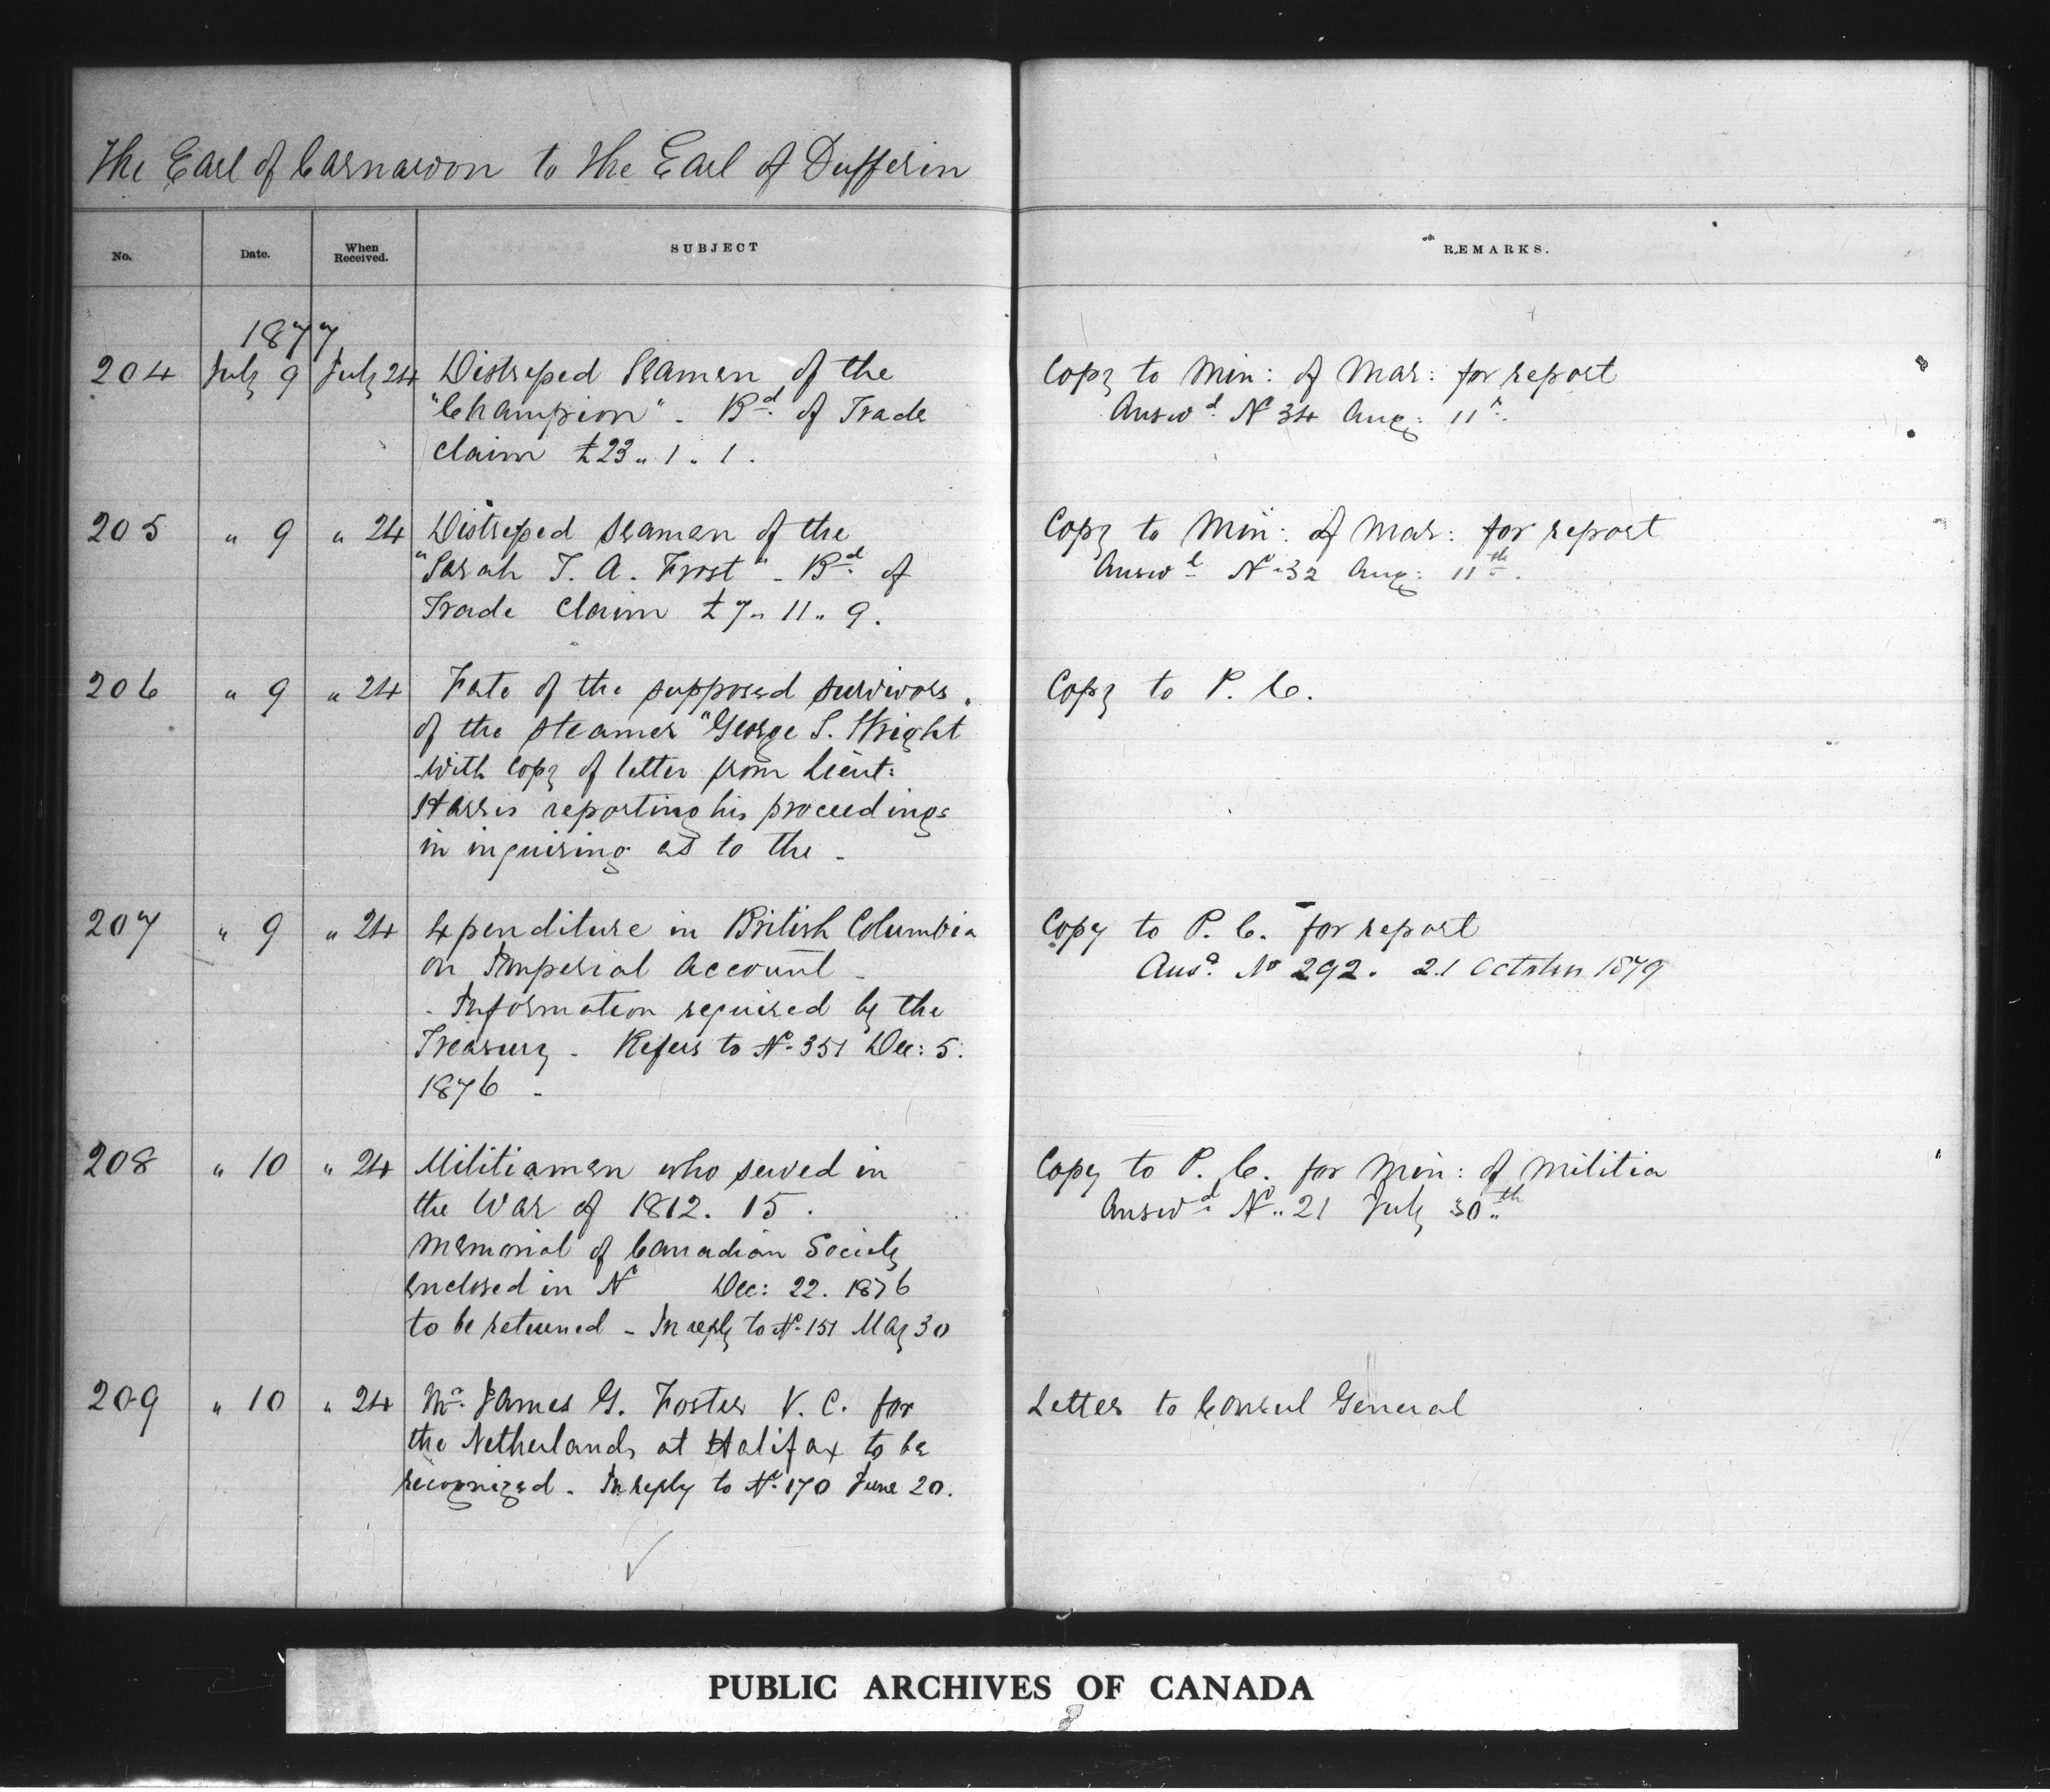 The Earl of Carnarvon to the Earl of Dufferin
No. Date. When Received. SUBJECT REMARKS.
1877
204 July 9 July 24 Distressed Seamen of the
"Champion" - Bd. of Trade
Claim £23 " 1 " 1.
Copy to Min: of Mar: for report
Answd. No 34 Aug: 11th.
205 " 9 " 24 Distressed Seamen of the
"Sarah T. A. Frost" - Bd. of
Trade Claim £7 " 11 " 9.
Copy to Min: of Mar: for report
Answd. No 32 Aug: 11th.
206 " 9 " 24 Fate of the supposed survivors
of the steamer "George S. Wright
with copy of letter from Lieut:
Harris reporting his proceedings
in inquiring as to the -
Copy to P. C.
207 " 9 " 24 Expenditure in British Columbia
on Imperial Account -
- Information required by the
Treasury - Refers to No. 351 Dec: 5.
1876 -
Copy to P. C. for report
Ansd. No 292. 21 October 1879
208 " 10 " 24 Militiamen who served in
the War of 1812. 15.
Memorial of Canadian Society
enclosed in No Dec: 22. 1876
to be returned - In reply to No. 151 May 30
Copy to P. C. for Min: of Militia
Answd. No. 21 July 30th
209 " 10 " 24 Mr. James G. Foster V. C. for
the Netherlands at Halifax to be
recognized - In reply to No. 170 June 20.
Letter to Consul General
PUBLIC ARCHIVES OF CANADA